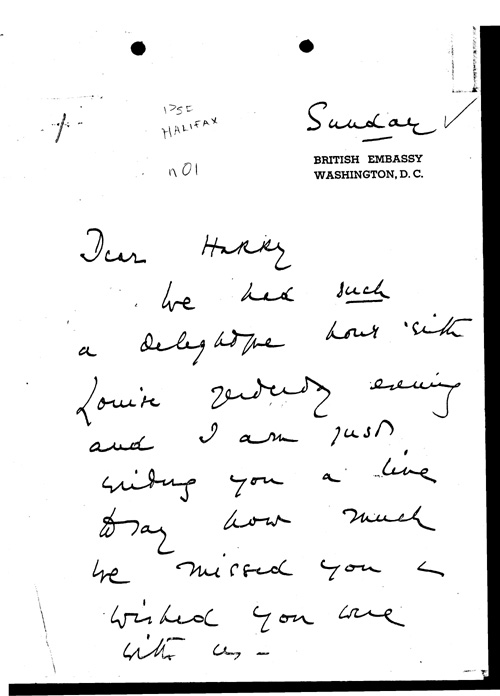 PSF
HALIFAX
n01
Sunday
BRITISH EMBASSY
WASHINGTON, D. C.
Dear Harry
We had such
a delightful hour with
Louise yesterday evening
and I am just
writing you a line
to say how much
we missed you &
wished you were
with us -